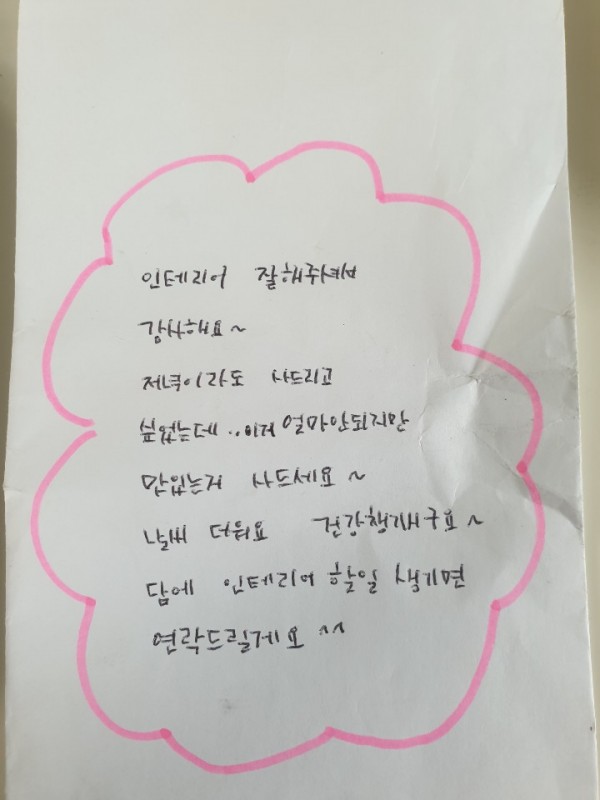 인테리어 잘해주셔서
감사해요~
저녁이라도 사드리고
싶었는데..이거 얼마안되지만
맛있는거 사드세요~
날씨 더워요 건강챙기구요~
담에 인테리어 할일 생기면
연락드릴게요 ^^